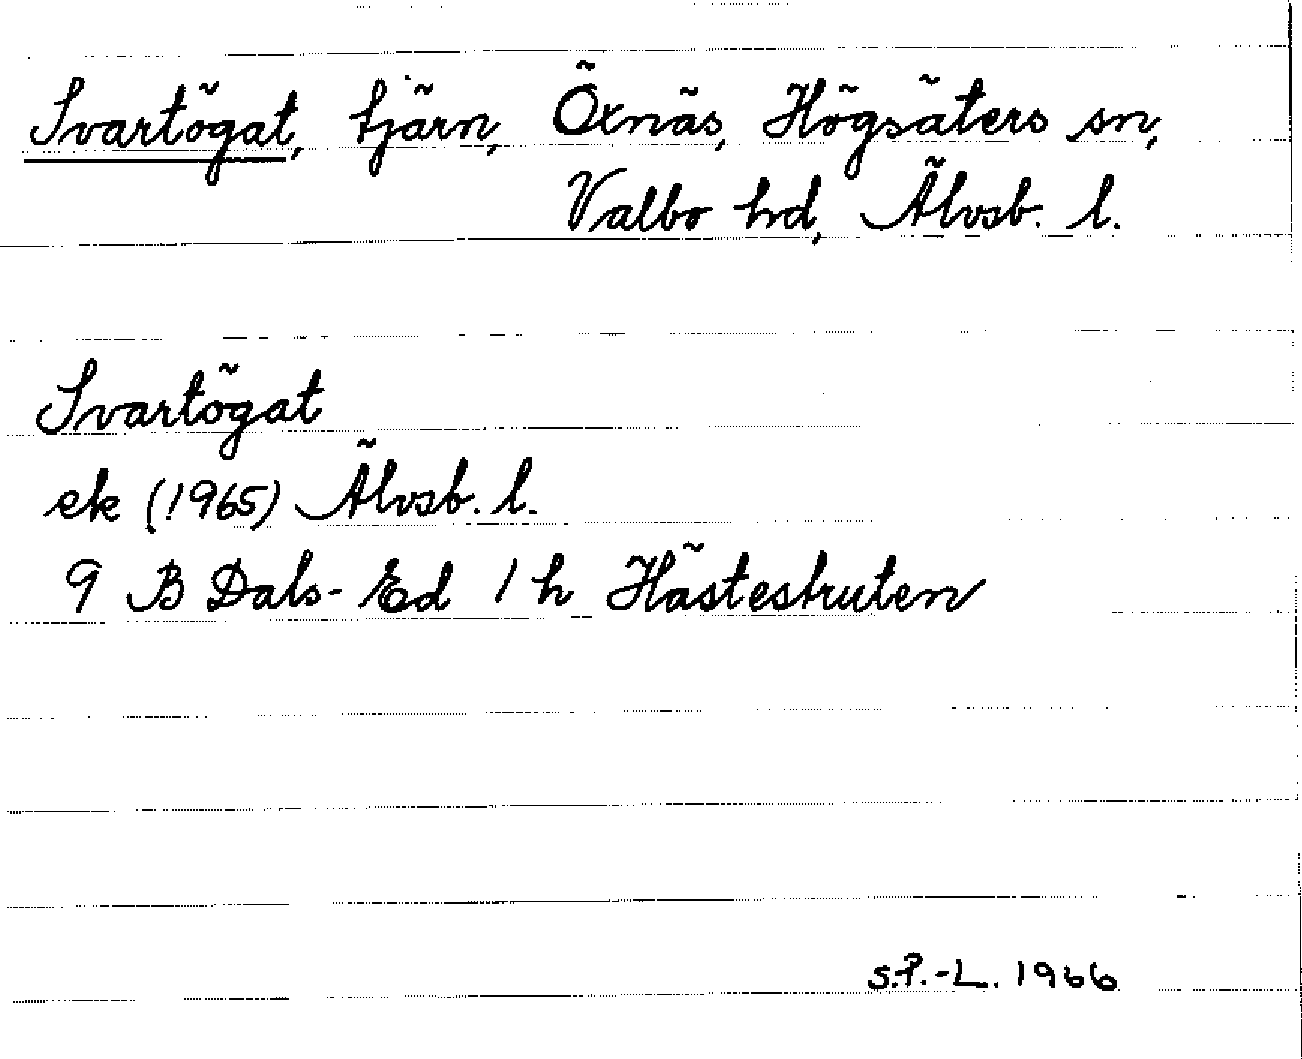 Svartögat, tjärn, Öxnäs, Högsäters sn,
Valbo hd, Älvsb. l.
Svartögat
ek (1965) Älvsb. l.
9 B Dals-Ed 1 h Hästestruten
S.P.-L. 1966